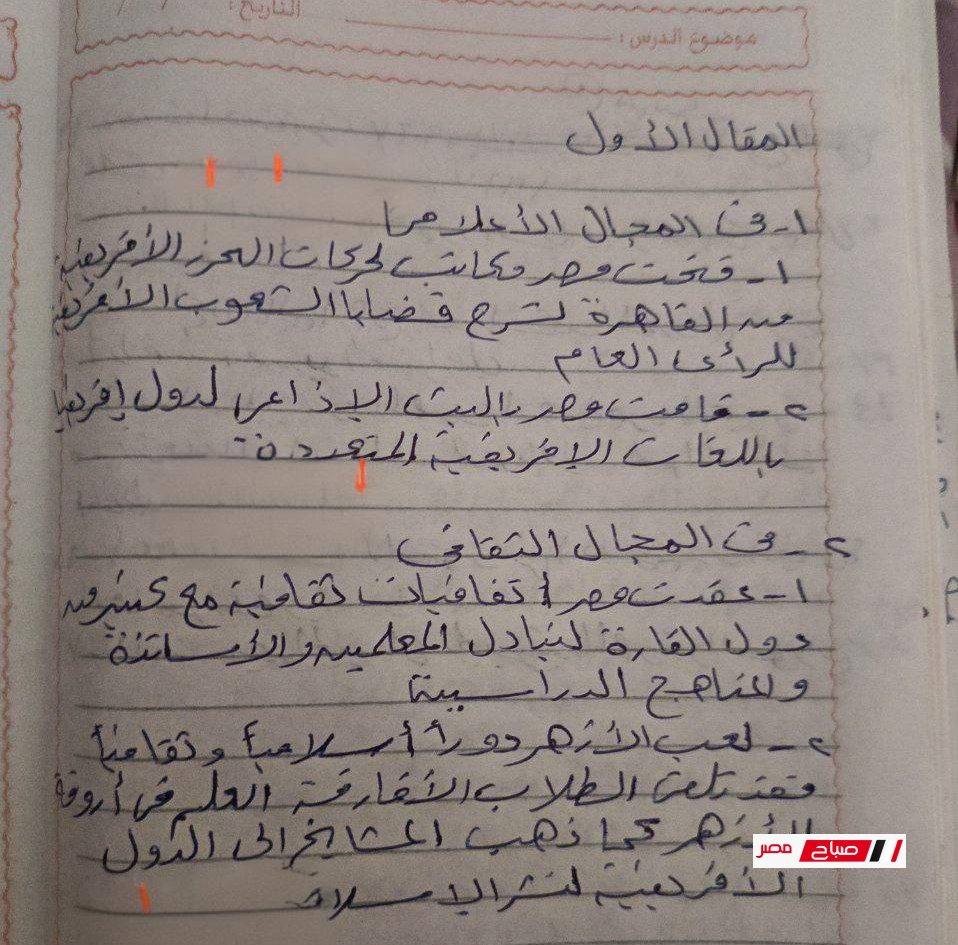 التاريخ: / /
موضوع الدرس:
المقال الأول
١- فى المجال الأعلامى
١- فتحت مصر مكاتب لحركات التحرر الأفريقية
من القاهرة لشرح قضايا الشعوب الأفريقية
للرأى العام
٢- قامت مصر بالبث الإذاعى لدول إفريقيا
باللغات الإفريقية المتعددة.
٢- فى المجال الثقافى
١- عقدت مصر اتفاقيات ثقافية مع كثير من
دول القارة لتبادل المعلمين والأساتذة
والمناهج الدراسية
٢- لعب الأزهر دوراً أسلامياً وثقافياً
فقد تلقى الطلاب الأفارقة العلم فى أروقة
الأزهر كما ذهب المشايخ الى الدول
الأفريقية لنشر الإسلام
صباح مصر